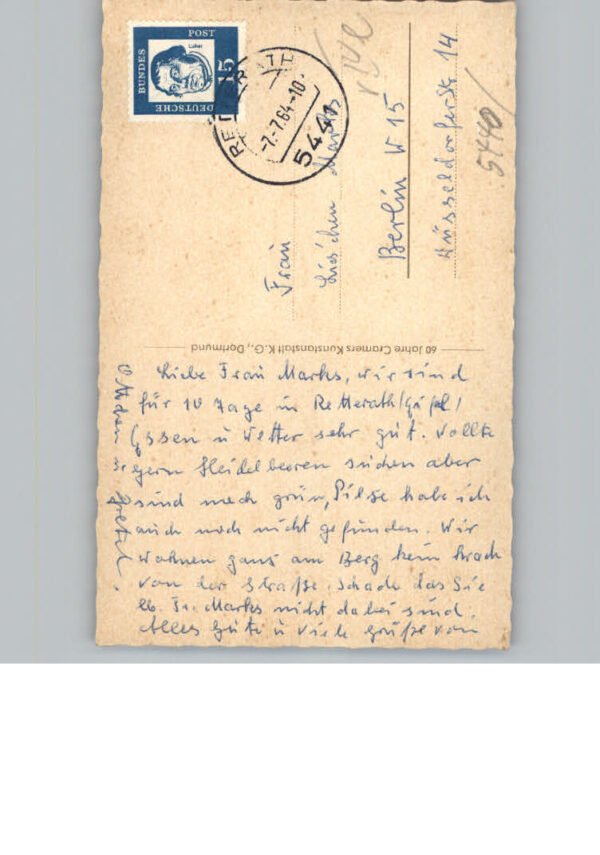 DEUTSCHE
BUNDES
POST
15
Luther
RETTERATH
-7.-7.64-10
5441
Frau
Lieschen Marks
Berlin W 15
Düsseldorferstr 14
5440
60 Jahre Cramers Kunstanstalt K.G., Dortmund
Liebe Frau Marks, wir sind
für 10 Tage in Retterath/Eifel/
Essen u Wetter sehr gut. Wollte
gern Heidelbeeren suchen aber
sind noch grün, Pilze habe ich
auch noch nicht gefunden. Wir
wohnen ganz am Berg kein Krach
von der Straße. Schade das Sie
lb. Fr. Marks nicht dabei sind.
Alles Gute u viele Grüße von